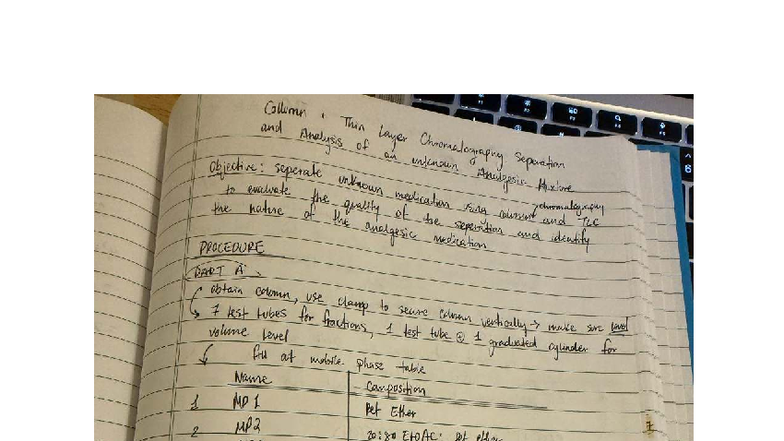 Collumn, Thin Layer Chromatography Separation
and Analysis of an unknown Analgesic Mixture
Objective: seperate unknown medication using column chromatography and TLC
to evaluate the quality of the seperation and identify
the nature of the analgesic medication
PROCEDURE
PART A
obtain column, use clamp to secure column vertically → make sure level
7 test tubes for fractions, 1 test tube 1 graduated cylinder for
volume level
fill at mobile phase table
Name Composition
1 MP1 Pet Ether
2 MP2 20:80 EtOAc: pet ether